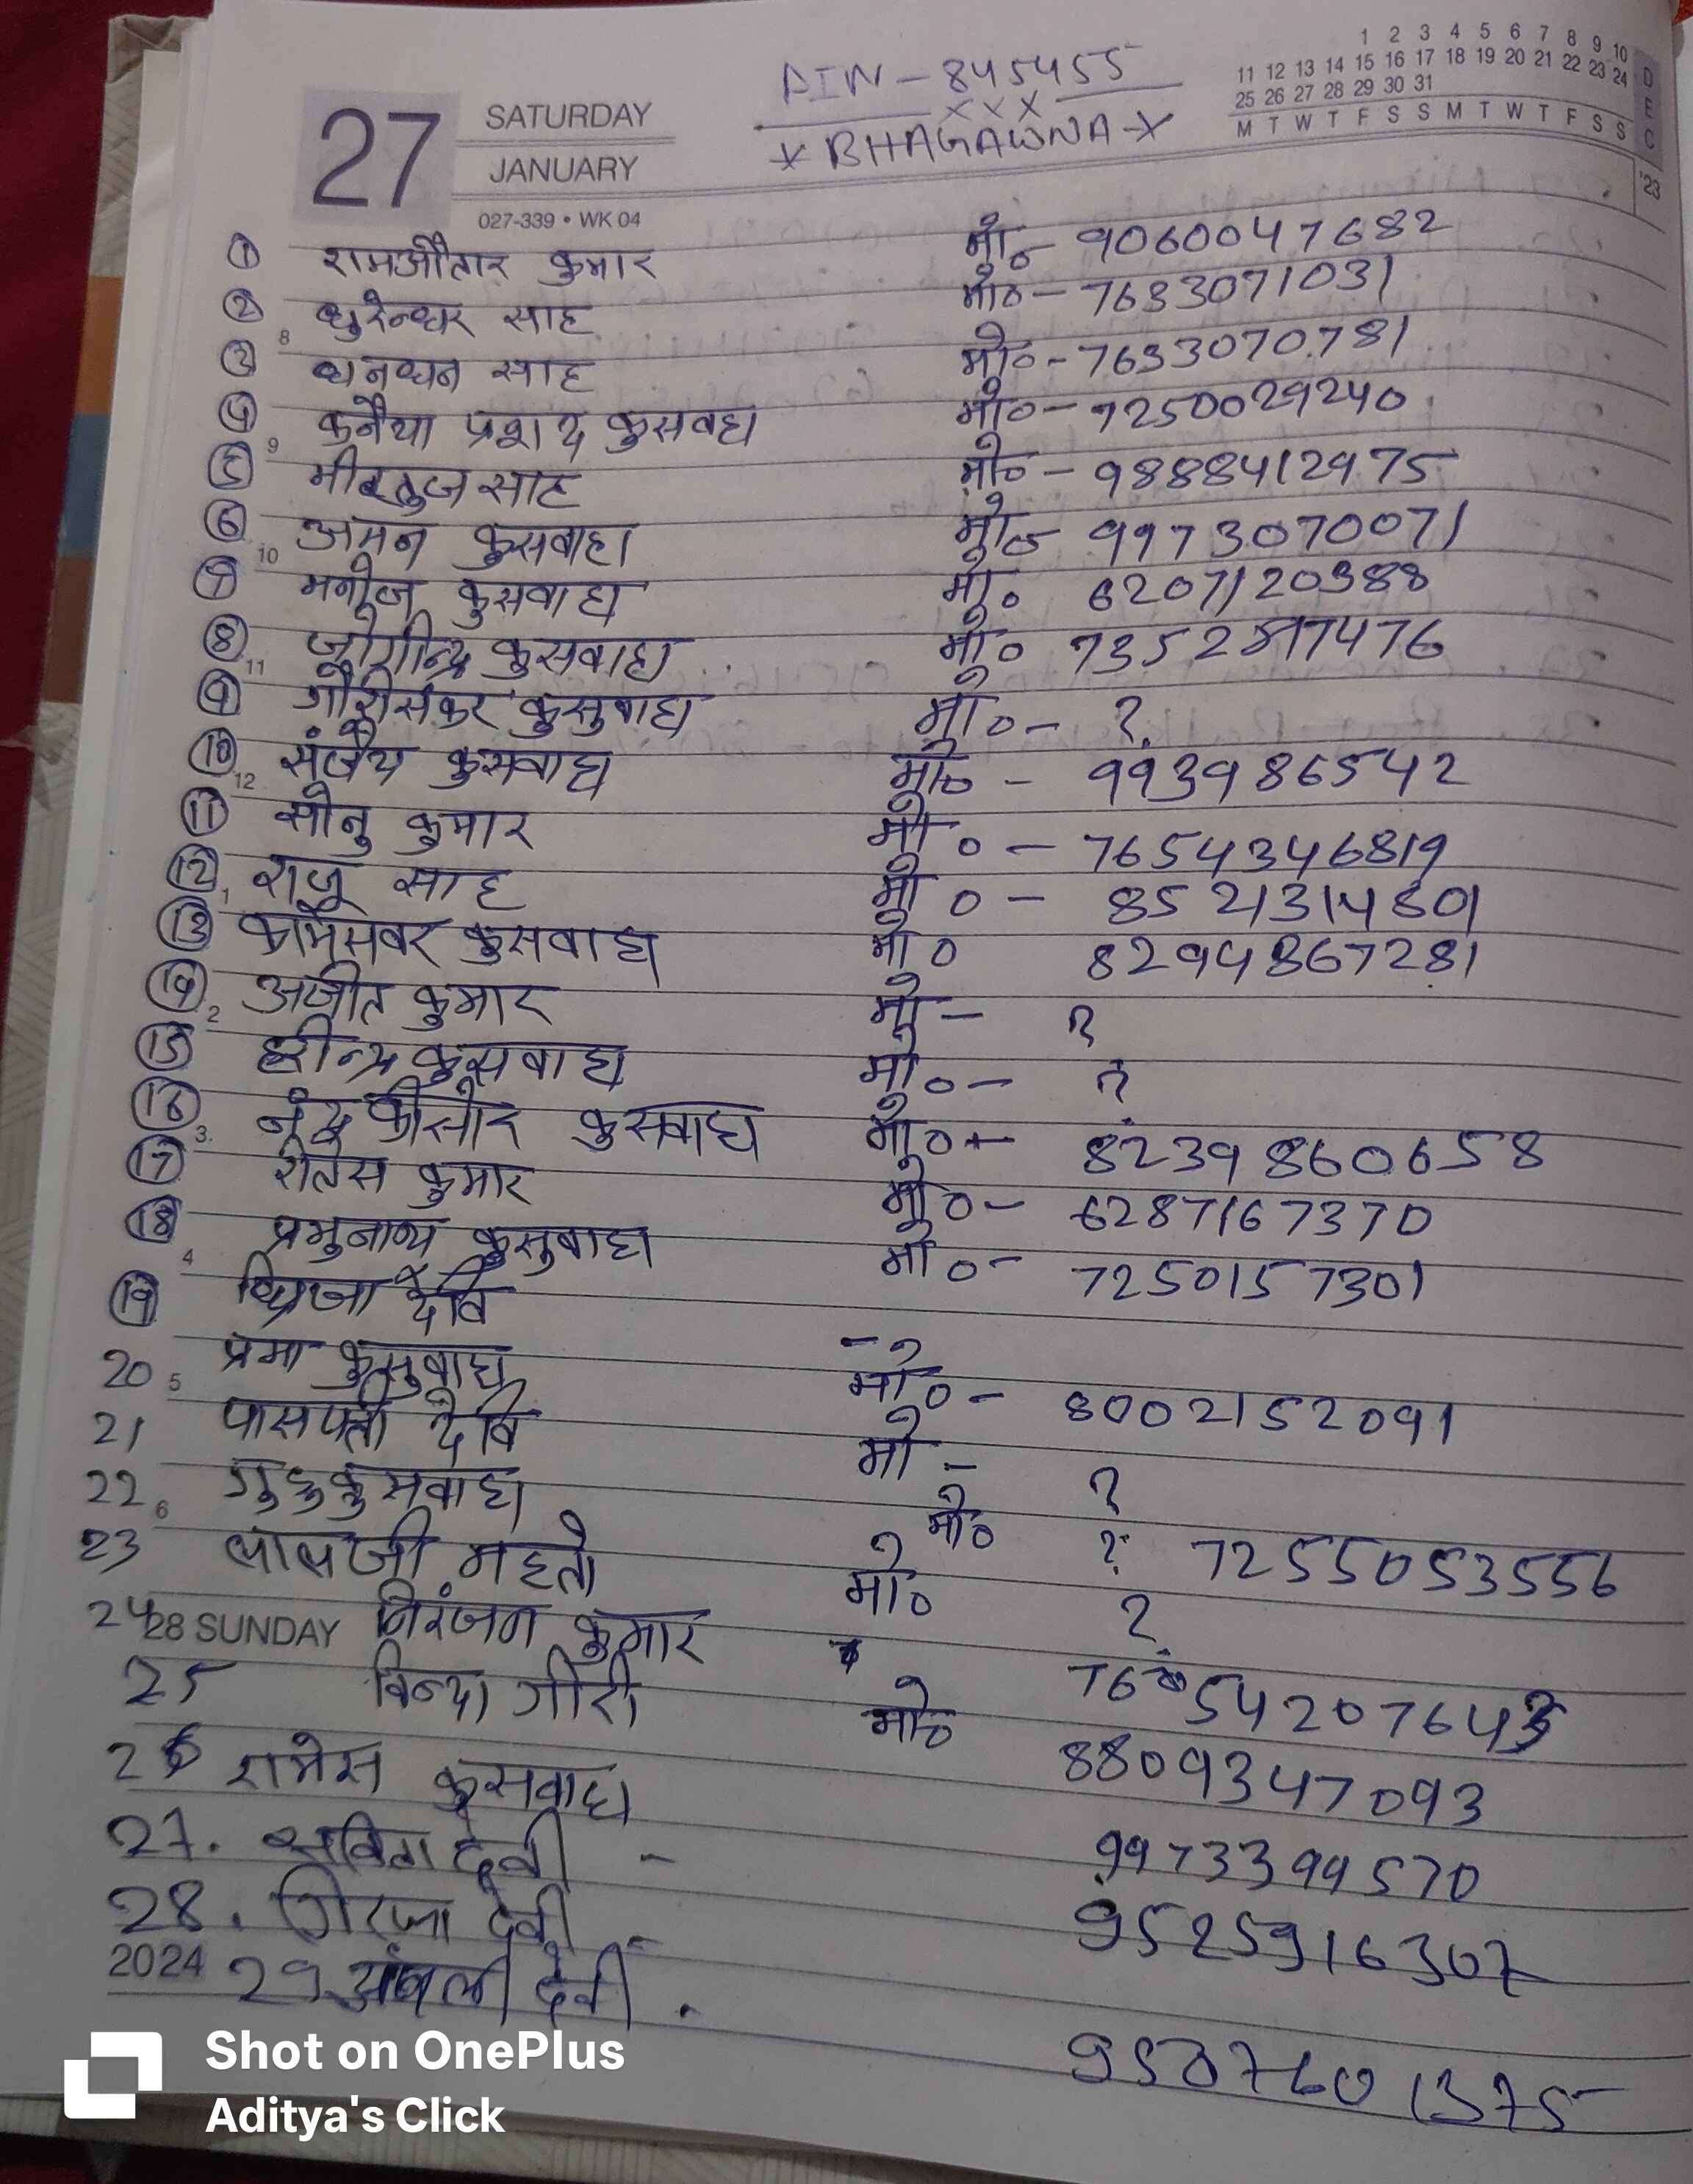 PIN - 845455
x x x
* BHAGAWNA *
1 2 3 4 5 6 7 8 9 10
11 12 13 14 15 16 17 18 19 20 21 22 23 24
25 26 27 28 29 30 31
M T W T F S S M T W T F S S
DEC '23
27 SATURDAY
JANUARY
027-339 • WK 04
① रामऔतार कुमार मो० 9060047682
② धुरेन्धर साह मो० - 7633071031
8
③ धनधन साह मो० - 7633070781
④ कनैया प्रशाद कुसवहा मो० - 7250029240
9
⑤ साह मो० - 9888412975
⑥ अमन कुसवाहा मो० 9973070071
10
⑦ मनोज कुसवाहा मो० 6207120388
⑧ जोगीन्द्र कुसवाहा मो० 7352817476
11
⑨ गौरीसंकर कुसुवाहा मो० - ?
⑩ संजैय कुसवाहा मो० - 993986542
12
⑪ सोनु कुमार मो० - 7654346819
⑫ राजु साह मो० - 8521314601
1
⑬ कामेसवर कुसवाहा मो० 8294867281
⑭ अजीत कुमार मो - ?
2
⑮ हरीन्द्र कुसवाहा मो० - ?
⑯ नंद कीसोर कुसवाहा मो० - 8239860658
3
⑰ रीतेस कुमार मो० - 6287167370
⑱ प्रभुनाथ कुसुवाहा मो० - 7250157301
4
⑲ देवि -
20 प्रेमा कुसुवाहा मो० - 8002152091
5
21 पासपती देवि मो - ?
22 गुड्डु कुसवाहा मो० ? 7255053556
6
23 लालजी महतो मो० ?
24 28 SUNDAY निरंजन कुमार 7654207643
25 विन्दा गीरी मो० 8809347093
26 रामेस कुसवाहा 9973399570
27. सविता देवी - 9525916307
28. गिरजा देवी -
2024 29 देवी . 9507601375
Shot on OnePlus
Aditya's Click